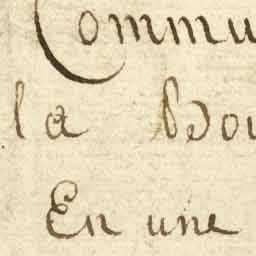 Commu
la Bou
En une